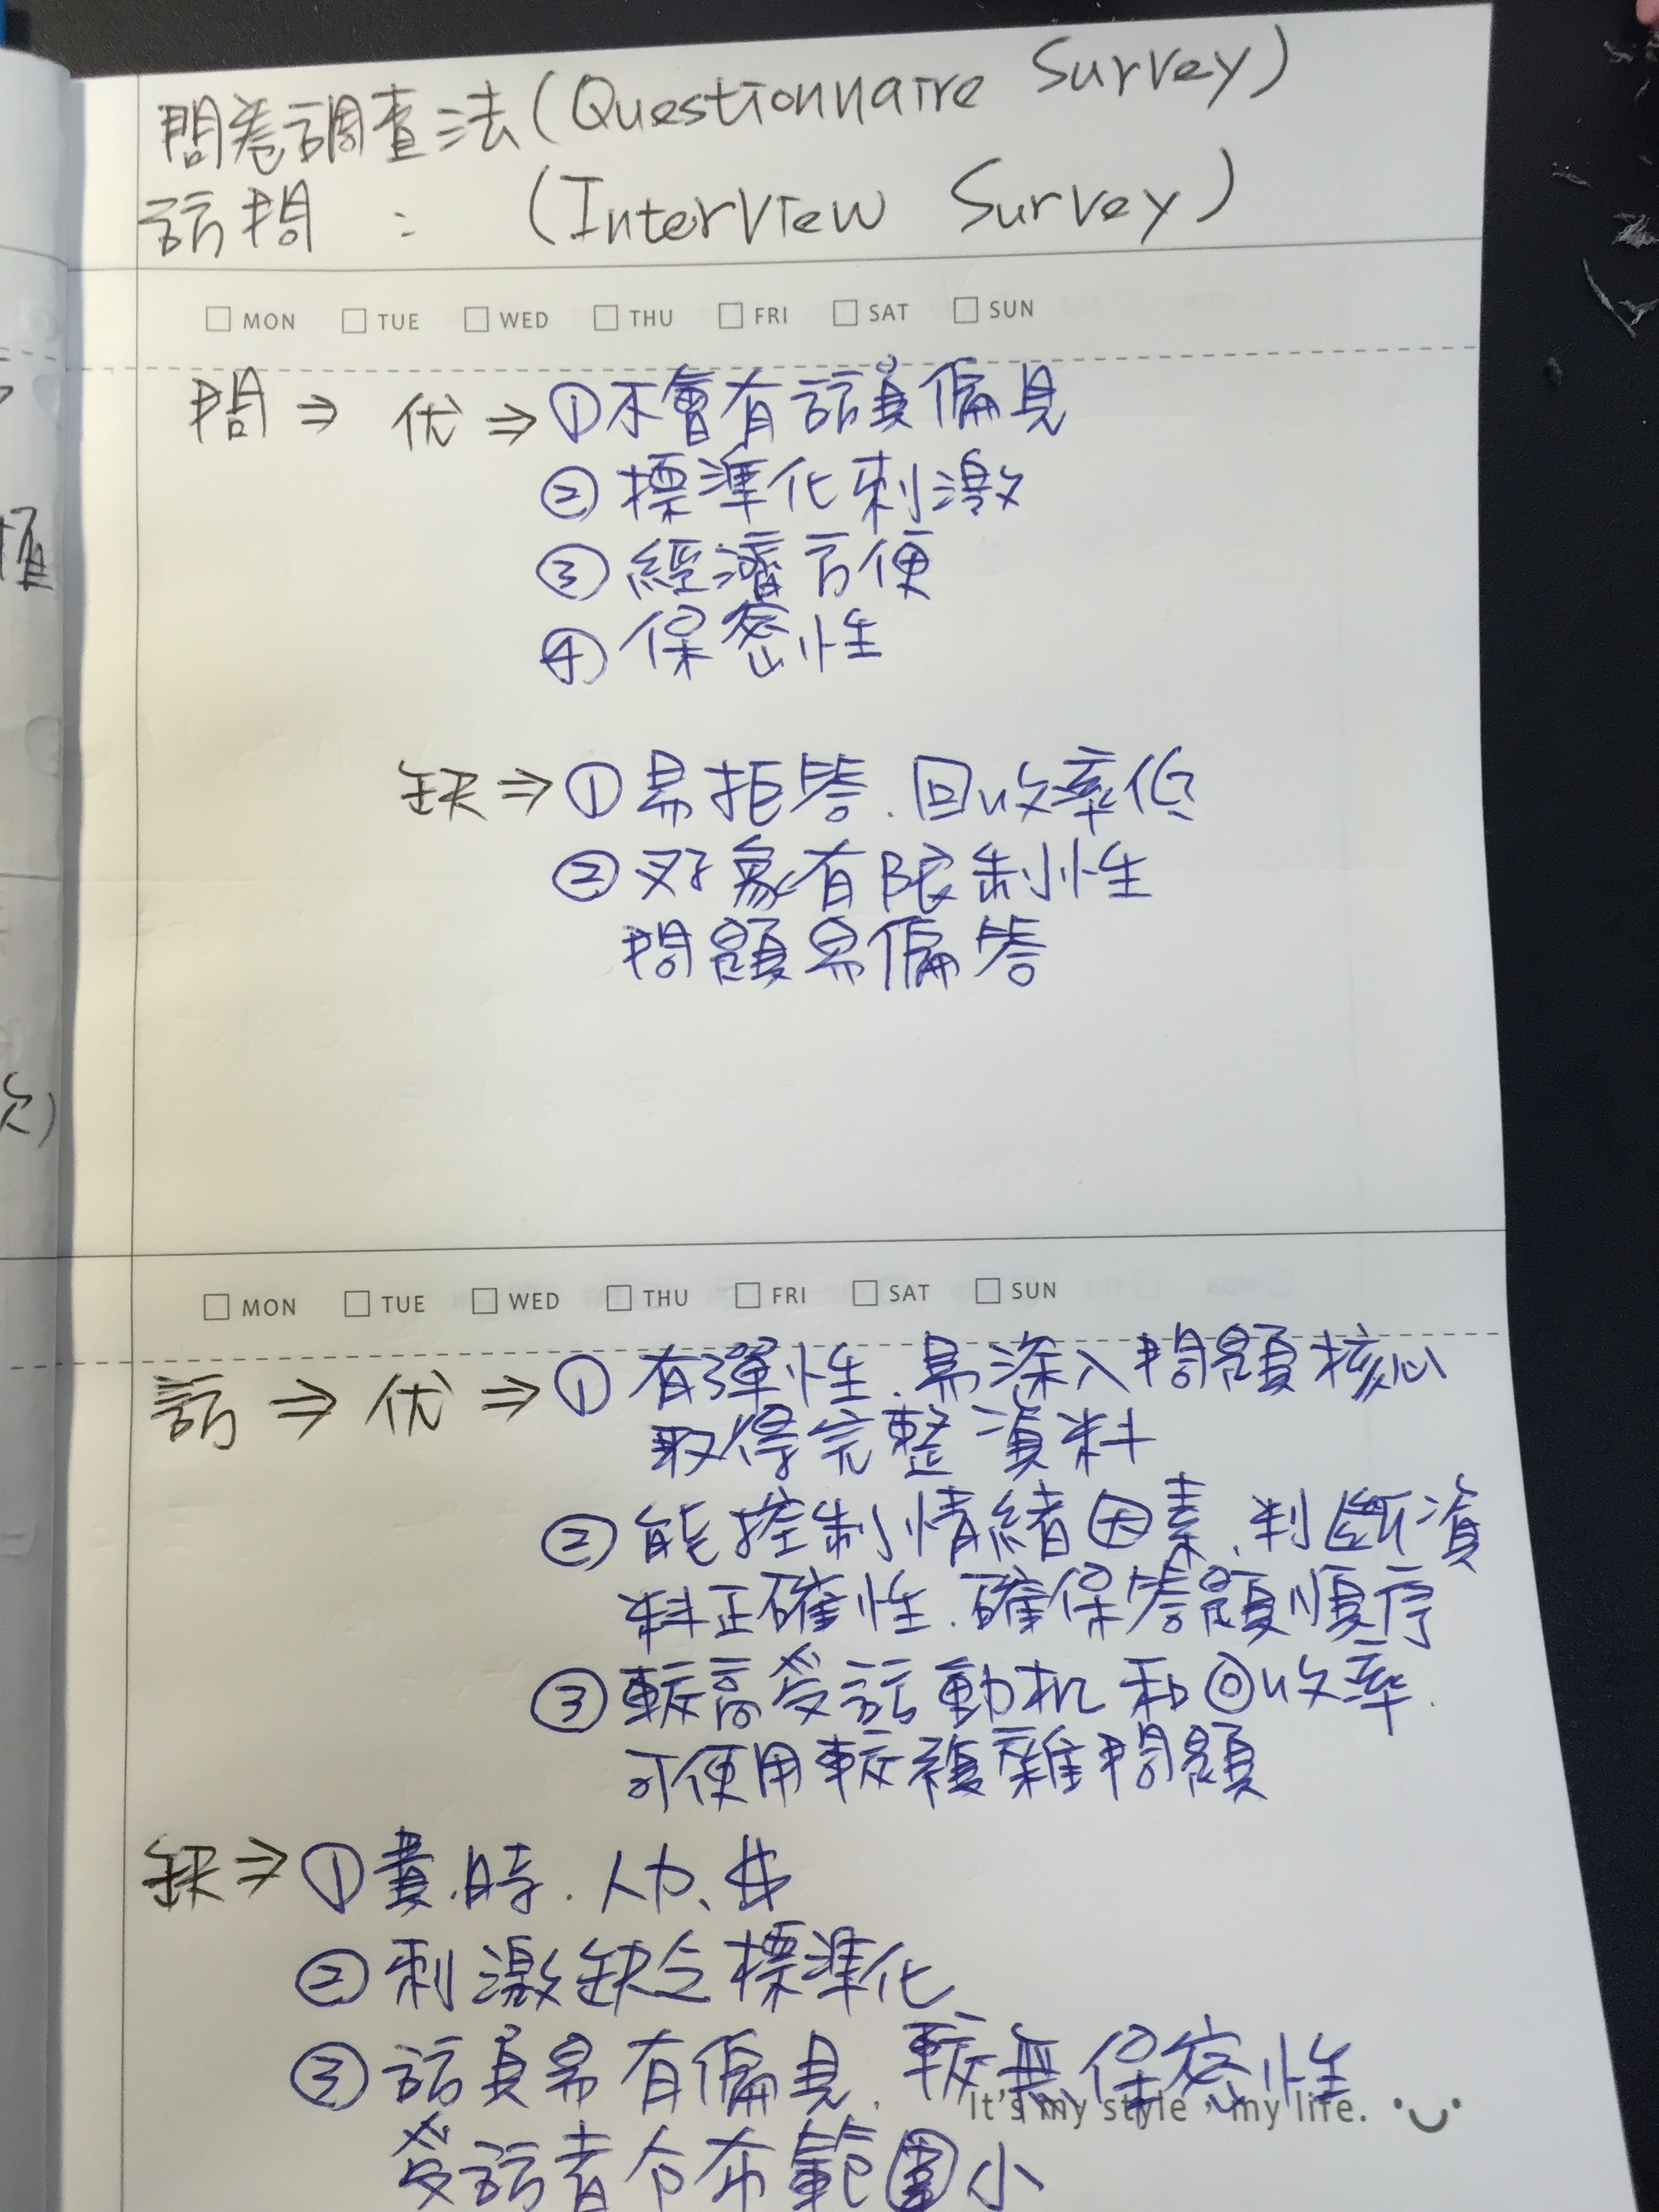 問卷調查法(Questionnaire Survey)
訪問 : (Interview Survey)
□ MON □ TUE □ WED □ THU □ FRI □ SAT □ SUN
問⇒ 优⇒①不會有訪員偏見
②標準化刺激
③經濟方便
④保密性
缺⇒①易拒答.回收率低
②对象有限制性
問題易偏答
□ MON □ TUE □ WED □ THU □ FRI □ SAT □ SUN
訪⇒优⇒①有彈性.易深入問題核心
取得完整資料
②能控制情緒因素.判斷資
料正確性.確保答題順序
③較高受訪動机和回收率.
可使用較複雜問題
缺⇒①費.時.人力、$
②刺激缺乏標準化、
③訪員易有偏見.較無保密性
It's my style, my life.
受訪者分布範圍小